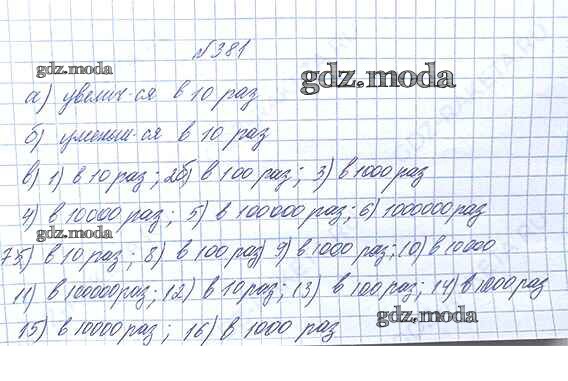 №381
gdz.moda
gdz.moda
а) увелич-ся в 10 раз
б) уменьш-ся в 10 раз
в) 1) в 10 раз; 2б) в 100 раз; 3) в 1000 раз
4) в 10000 раз; 5) в 100000 раз; 6) 1000000 раз
gdz.moda
75) в 10 раз; 8) в 100 раз) 9) в 1000 раз; 10) в 10000
11) в 100000 раз; 12) в 10 раз; 13) в 100 раз; 14) в 1000 раз
15) в 10000 раз; 16) в 1000 раз
gdz.moda